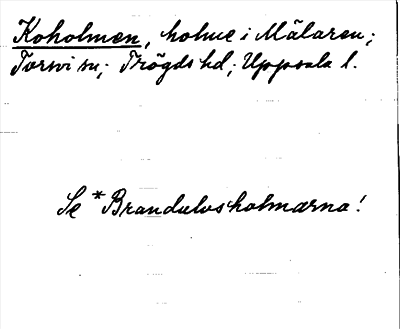 Koholmen, holme i Mälaren;
Torsvi sn; Trögds hd; Uppsala l.
Se *Brandalvsholmarna!